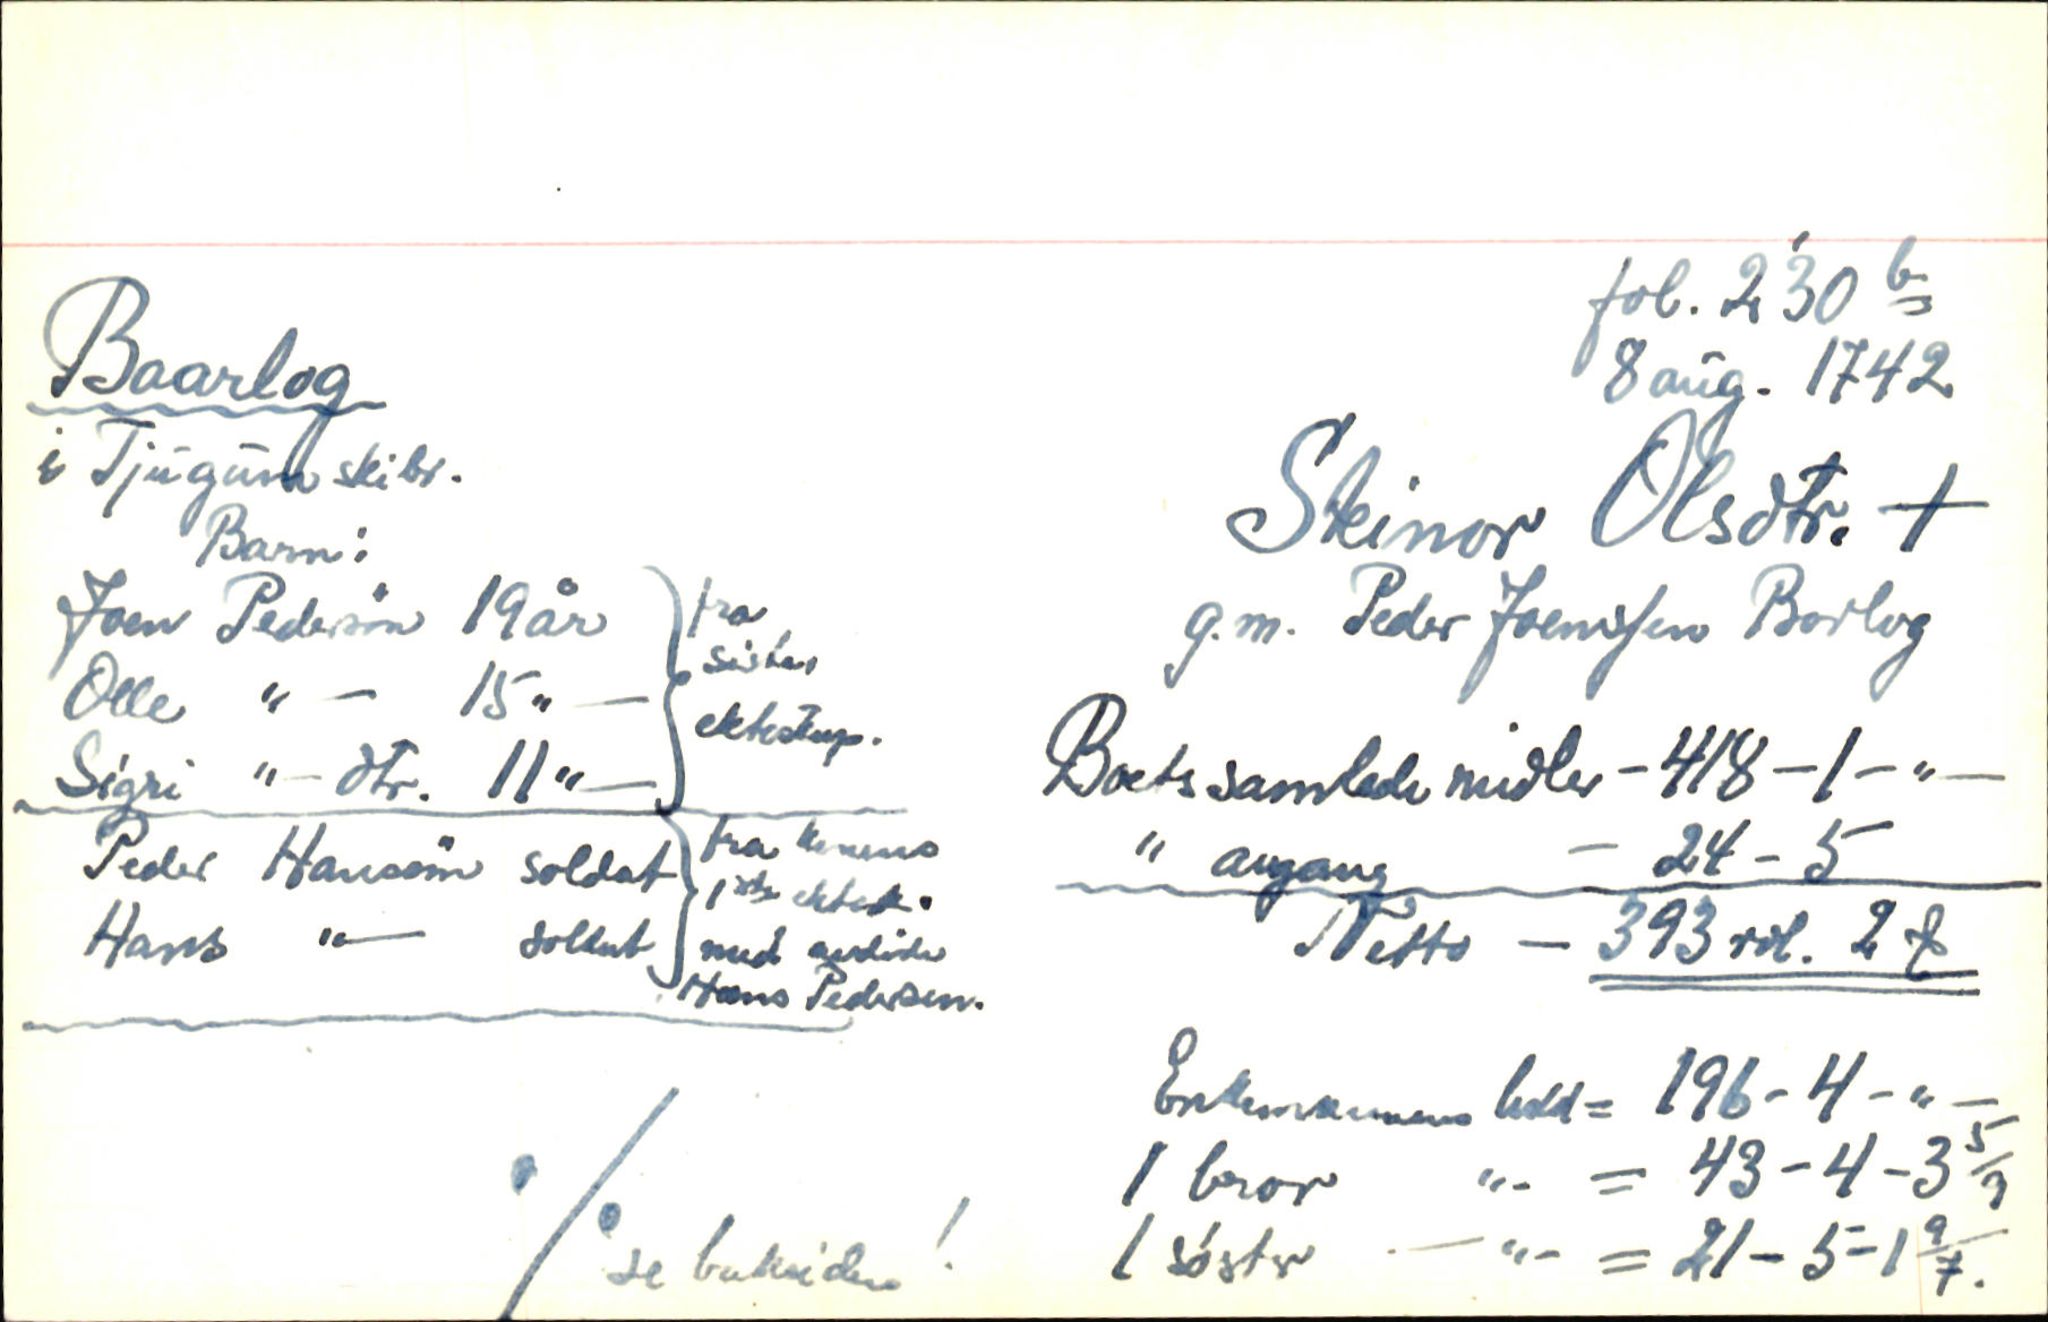 fol. 230 b
8 aug. 1742
Baarlog
i Tjugum skibr.
Barn:
Joen Pedersön 19 år
Olle " — 15 " —
Sigri " — dtr. 11 " —
fra
siste
ekteskap.
Peder Hansön soldat
Hans " — soldat
fra konens
1ste ektesk.
med avdöde
Hans Pedersen.
% se baksiden!
Steinor Olsdtr. +
g.m. Peder Joenssen Borlog
Boets samlede midler - 418 - 1 - " —
" avgang - 24 - 5
Netto - 393 rdl. 2 
Enkemannens lodd = 196 - 4 - " —
1 bror " - = 43 - 4 - 3 5/7
1 söster — " - = 21 - 5 - 1 9/7.